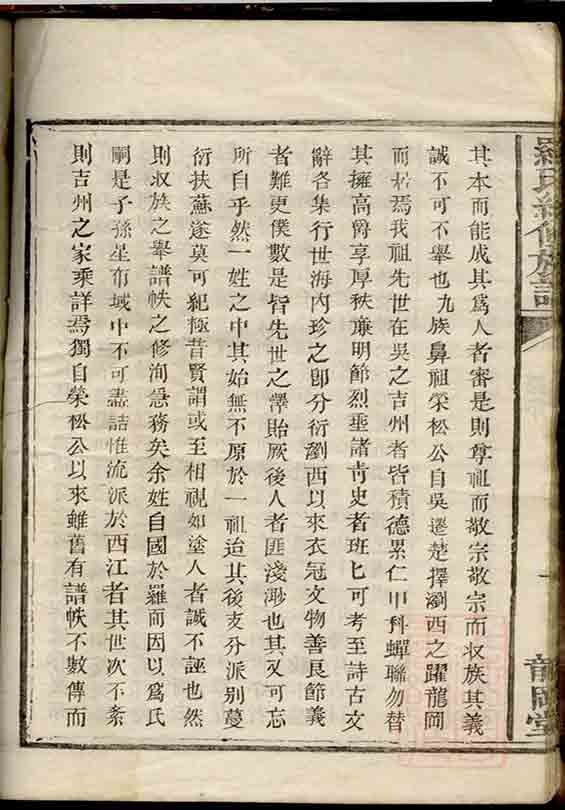 羅氏續修族譜
其本而能成其爲人者審是則尊祖而敬宗敬宗而收族其義
誠不可不舉也九族鼻祖榮松公自吳遷楚擇瀏西之躍龍岡
而居焉我祖先世在吳之吉州者皆積德累仁甲科蟬聯勿替
其擁高爵享厚秩廉明節烈垂諸靑史者班匕可考至詩古文
辭各集行世海內珍之卽分衍瀏西以來衣冠文物善良節義
者難更僕數是皆先世之澤貽厥後人者匪淺渺也其又可忘
所自乎然一姓之中其始無不原於一祖迨其後支分派別蔓
衍扶蘇遂莫可紀極昔賢謂或至相視如塗人者誠不誣也然
則收族之舉譜帙之修洵急務矣余姓自國於羅而因以爲氏
嗣是子孫星布域中不可盡詰惟流派於西江者其世次不紊
則吉州之家乘詳焉獨自榮松公以來雖舊有譜帙不數傳而